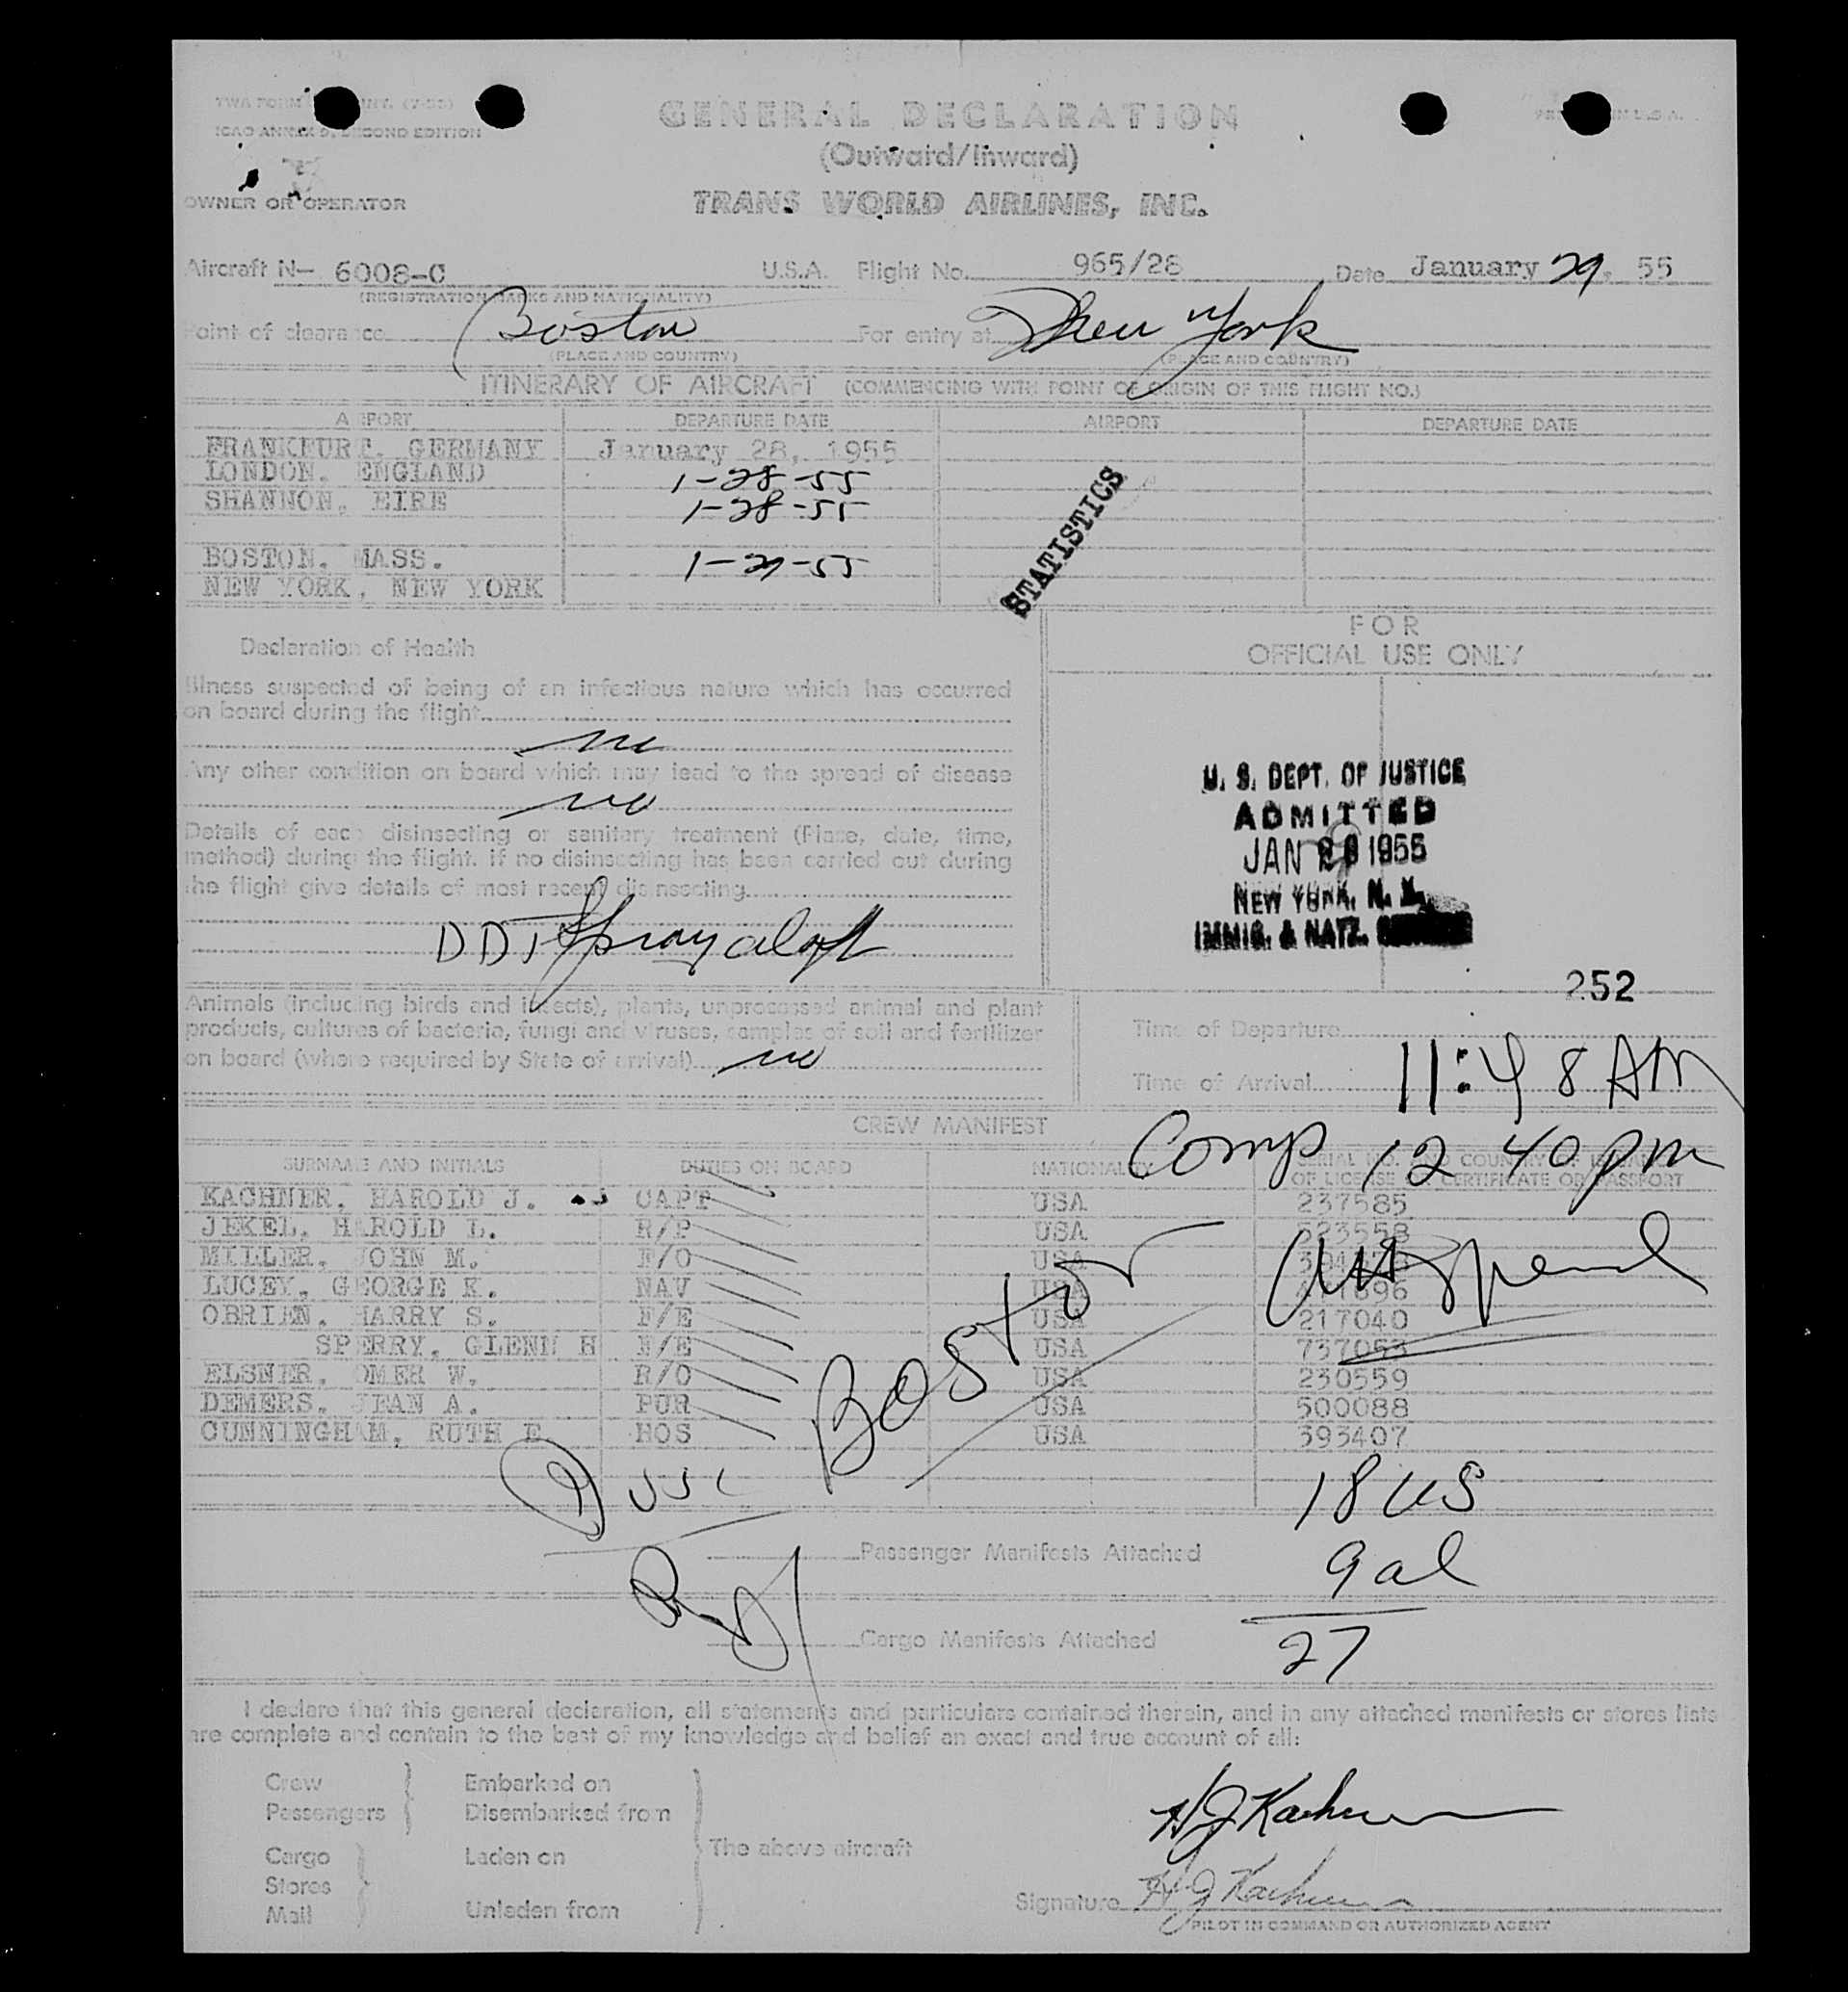 TWA FORM
ICAO ANNEX 9, SECOND EDITION
GENERAL DECLARATION
(Outward/Inward)
OWNER OR OPERATOR
TRANS WORLD AIRLINES, INC.
Aircraft N- 6008-C U.S.A. Flight No. 965/28 Date January 29, 55
(REGISTRATION MARKS AND NATIONALITY)
Point of clearance Boston For entry at New York
(PLACE AND COUNTRY) (PLACE AND COUNTRY)
ITINERARY OF AIRCRAFT (COMMENCING WITH POINT OF ORIGIN OF THIS FLIGHT NO.)
AIRPORT DEPARTURE DATE AIRPORT DEPARTURE DATE
FRANKFURT, GERMANY January 28, 1955
LONDON, ENGLAND 1-28-55
SHANNON, EIRE 1-28-55
BOSTON, MASS. 1-29-55
NEW YORK, NEW YORK
STATISTICS
Declaration of Health
FOR
OFFICIAL USE ONLY
Illness suspected of being of an infectious nature which has occurred
on board during the flight
no
Any other condition on board which may lead to the spread of disease
no
Details of each disinsecting or sanitary treatment (Place, date, time,
method) during the flight. If no disinsecting has been carried out during
the flight give details of most recent disinsecting
DDT Spray aloft
U. S. DEPT. OF JUSTICE
ADMITTED
JAN 29 1955
NEW YORK, N. Y.
IMMIG. & NATZ.
252
Animals (including birds and insects), plants, unprocessed animal and plant
products, cultures of bacteria, fungi and viruses, samples of soil and fertilizer
on board (where required by State of arrival) no
Time of Departure
Time of Arrival 11:48 AM
Comp 12 40 pm
CREW MANIFEST
SURNAME AND INITIALS DUTIES ON BOARD NATIONALITY SERIAL NO. AND COUNTRY OF ISSUANCE
OF LICENSE OR CERTIFICATE OR PASSPORT
KACHNER, HAROLD J. CAPT USA 237585
JEKEL, HAROLD L. R/P USA 523558
MILLER, JOHN M. F/O USA
LUCEY, GEORGE K. NAV USA
OBRIEN, HARRY S. F/E USA 217040
SPERRY, GLENN H F/E USA 737053
ELSNER, OMER W. R/O USA 230559
DEMERS, JEAN A. PUR USA 500088
CUNNINGHAM, RUTH E. HOS USA 393407
Boston
9 USC
18 US
Passenger Manifests Attached 9 al
Cargo Manifests Attached 27
I declare that this general declaration, all statements and particulars contained therein, and in any attached manifests or stores lists
are complete and contain to the best of my knowledge and belief an exact and true account of all:
Crew Embarked on
Passengers Disembarked from
The above aircraft
Cargo Laden on
Stores
Mail Unladen from
H J Kachner
Signature H J Kachner
PILOT IN COMMAND OR AUTHORIZED AGENT